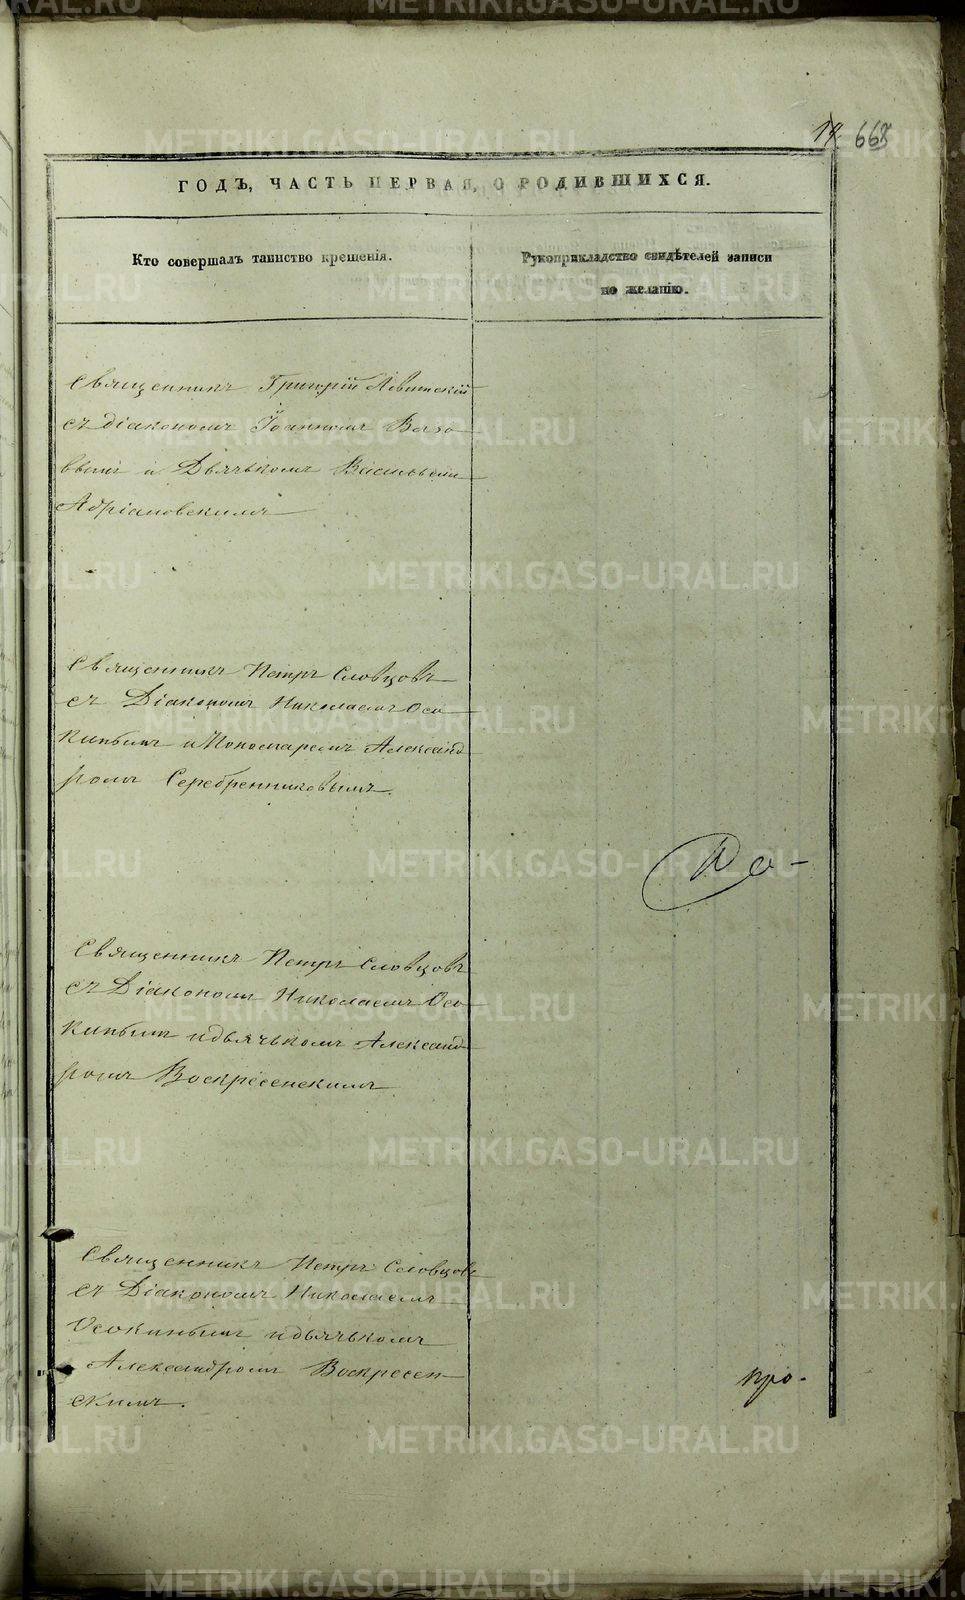 668
ГОДЪ, ЧАСТЬ ПЕРВАЯ, О РОДИВШИХСЯ.
Кто совершалъ таинство крещенія.
Рукоприкладство свидѣтелей записи
по желанію.
Священникъ Григорій Левитскій
съ діакономъ Іоанномъ
вымъ и Дьячькомъ Васильемъ
Адріановскимъ
Священникъ Петръ Словцовъ
съ Діакономъ Николаемъ Осо
кинымъ и Пономаремъ Александ
ромъ Серебренниковымъ.
Священникъ Петръ Словцовъ
съ Діакономъ Николаемъ Осо
кинымъ и дьячькомъ Александ
ромъ Воскресенскимъ
Священникъ Петръ Словцовъ
съ Діакономъ Николаемъ
Осокинымъ и дьячькомъ
Александромъ Воскресен
скимъ.
про-
METRIKI.GASO-URAL.RU